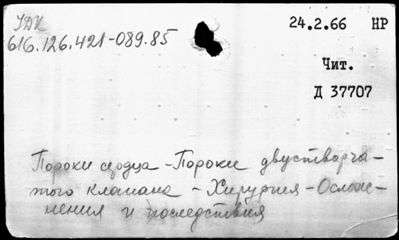 УДК
616.126.421-089.85
24.2.66 НР
Чит.
Д 37707
Пороки сердца - Пороки двустворча-
того клапана - Хирургия - Ослож-
нения и последствия